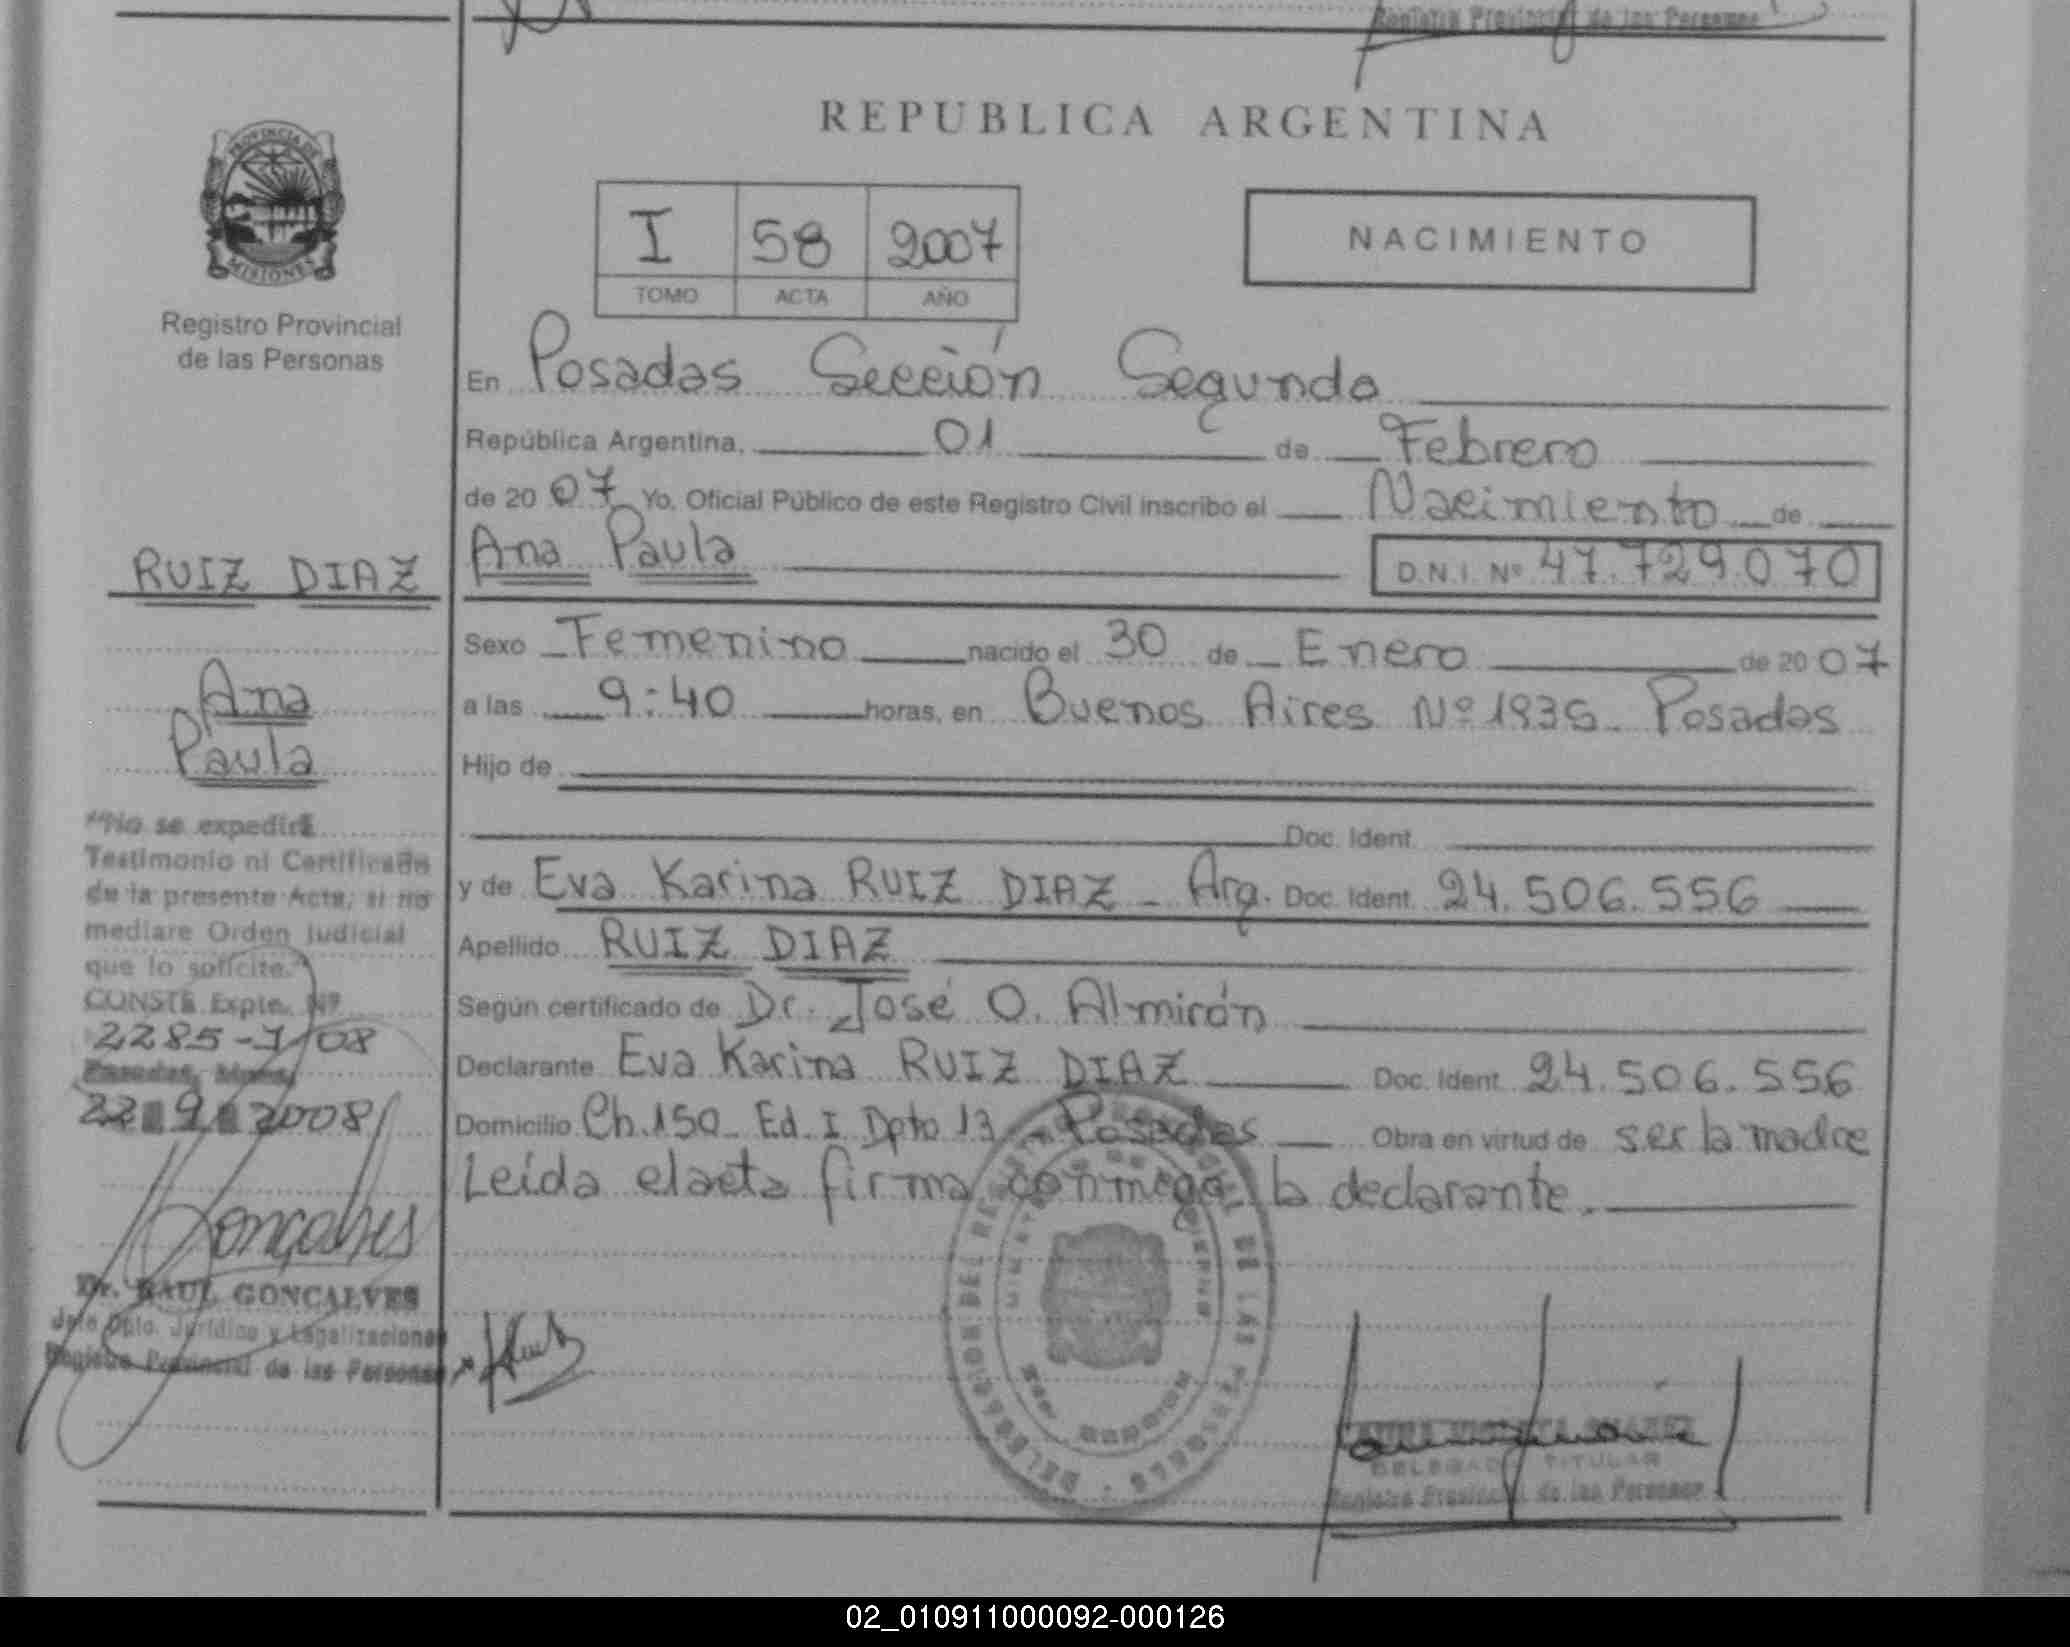 Registro Provincial de las Personas
REPUBLICA ARGENTINA
PROVINCIA DE
MISIONES
Registro Provincial
de las Personas
I 58 2007
TOMO ACTA AÑO
NACIMIENTO
En Posadas Sección Segunda
República Argentina, 01 de Febrero
de 20 07 Yo, Oficial Público de este Registro Civil inscribo el Nacimiento de
RUIZ DIAZ
Ana Paula D.N.I. Nº 47.729.070
Sexo Femenino nacido el 30 de Enero de 20 07
Ana
Paula
a las 9:40 horas, en Buenos Aires Nº 1935 - Posadas
Hijo de
Doc. Ident.
y de Eva Karina RUIZ DIAZ - Arg. Doc. Ident. 24.506.556
Apellido RUIZ DIAZ
Según certificado de Dr. José O. Almirón
Declarante Eva Karina RUIZ DIAZ Doc. Ident. 24.506.556
Domicilio Ch. 150 - Ed. I Dpto 13 - Posadas Obra en virtud de ser la madre
Leída el acta firma conmigo la declarante.
"No se expedirá
Testimonio ni Certificado
de la presente Acta, si no
mediare Orden Judicial
que lo solicite."
CONSTE Expte. Nº
2285-J/08
Posadas, Mnes,
22 9 2008
Goncalves
Dr. RAUL GONCALVES
Jefe Dpto. Jurídico y Legalizaciones
Registro Provincial de las Personas
DELEGACION DEL REGISTRO PROVINCIAL DE LAS PERSONAS
MINISTERIO DE GOBIERNO
MISIONES
SUAREZ
DELEGADA TITULAR
Registro Provincial de las Personas
02_010911000092-000126